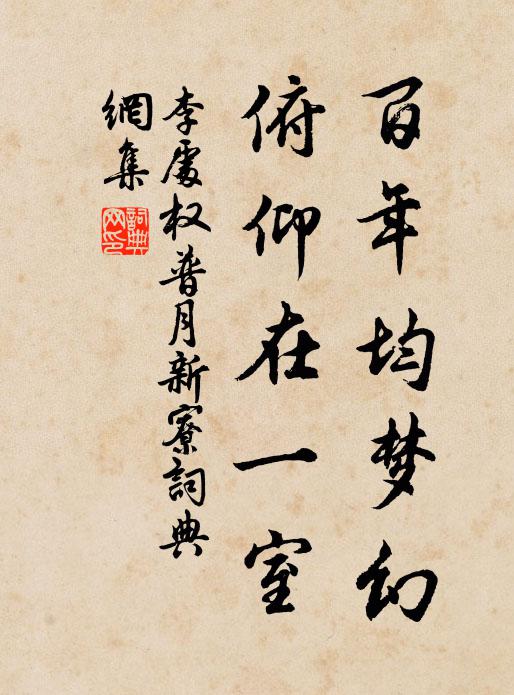 百年均梦幻
俯仰在一室
李處权普月新寮詞典
網集
詞典网印